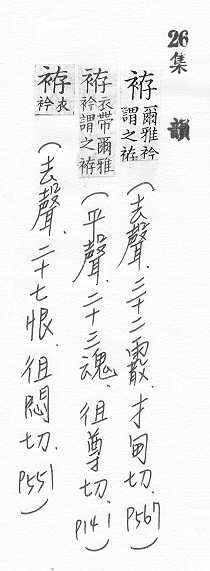 26 集 韻
袸 爾雅衿謂之袸 (去聲. 三十二霰. 才甸切. P567)
袸 衣帶爾雅衿謂之袸 (平聲. 二十三魂. 徂尊切. P141)
袸 衣衿 (去聲. 二十七恨. 徂悶切. P551)